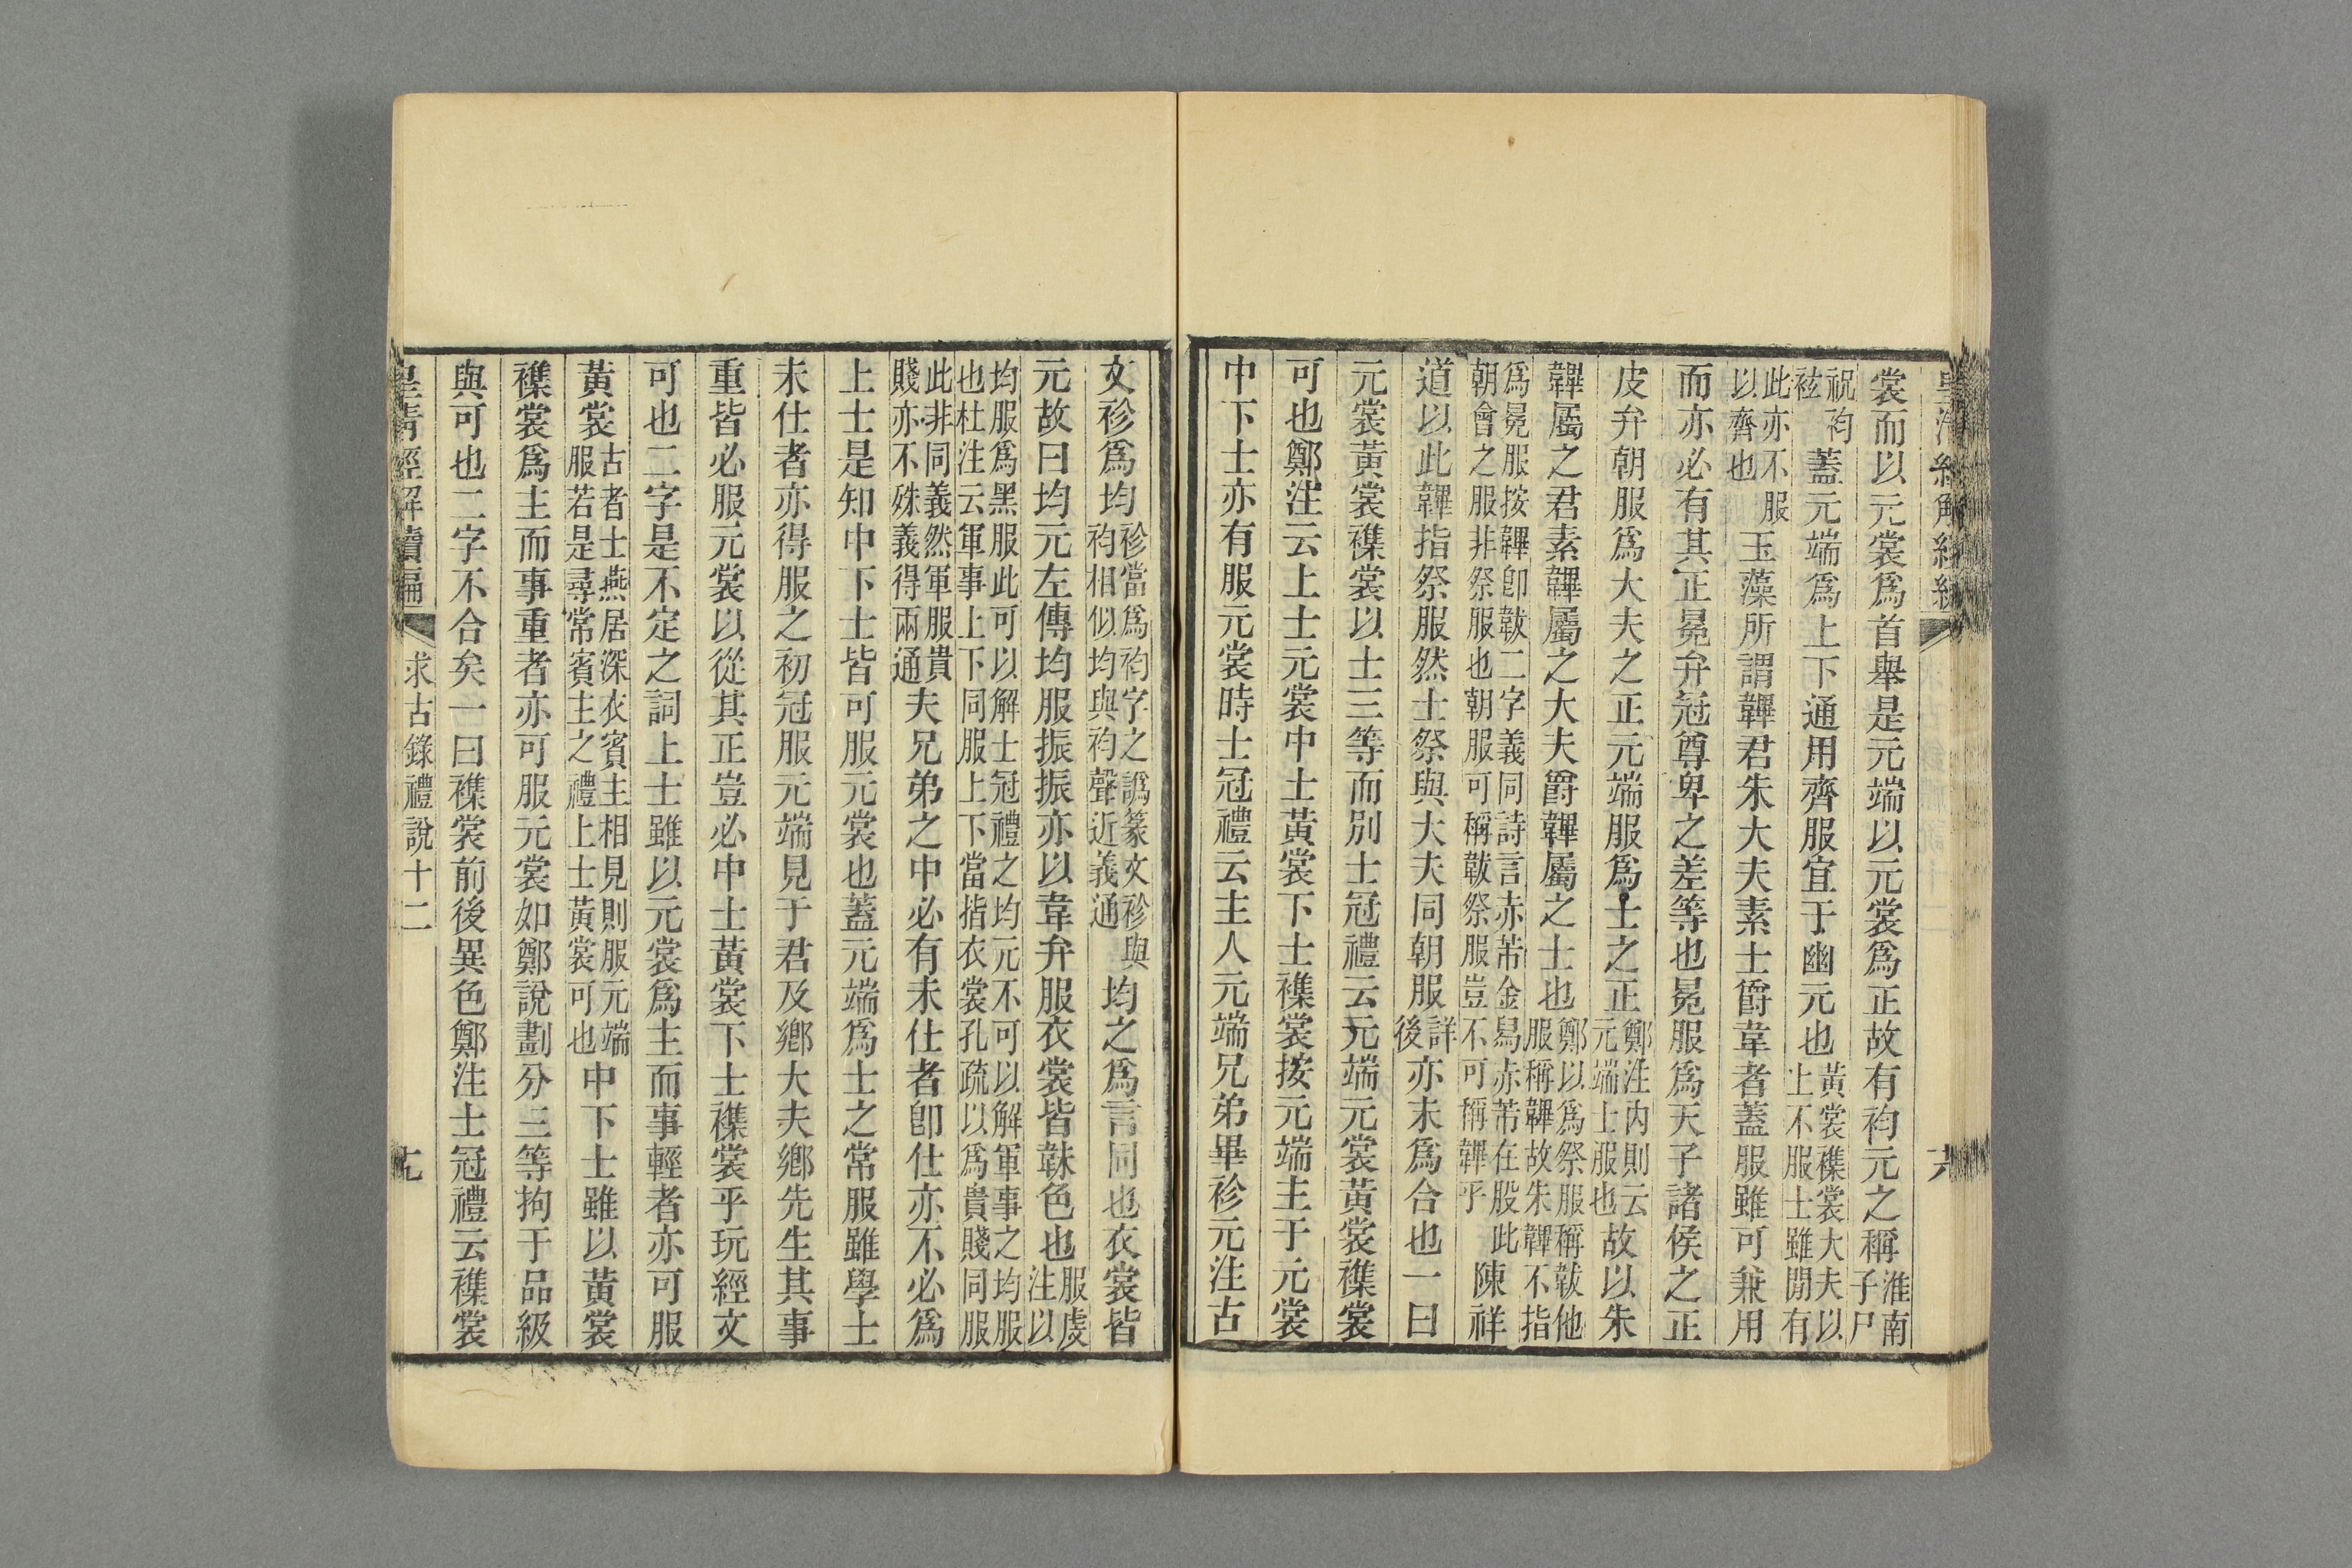 裳而以元裳爲首舉是元端以元裳爲正故有袀元之稱淮南子尸
祝袀袨蓋元端爲上下通用齊服宜于幽元也黃裳襍裳大夫以上不服士雖閒有
此亦不服以齊也玉藻所謂韠君朱大夫素士爵韋者蓋服雖可兼用
而亦必有其正冕弁冠尊卑之差等也冕服爲天子諸侯之正
皮弁朝服爲大夫之正元端服爲士之正鄭注內則云元端士服也故以朱
韠屬之君素韠屬之大夫爵韠屬之士也鄭以爲祭服稱韍他服稱韠故朱韠不指
爲冕服按韠卽韍二字義同詩言赤芾金舄赤芾在股此朝會之服非祭服也朝服可稱韍祭服豈不可稱韠乎陳祥
道以此韠指祭服然士祭與大夫同朝服詳後亦未爲合也一曰
元裳黃裳襍裳以士三等而別士冠禮云元端元裳黃裳襍裳
可也鄭注云上士元裳中士黃裳下士襍裳按元端主于元裳
中下士亦有服元裳時士冠禮云主人元端兄弟畢袗元注古
文袗爲均袗當爲袀字之譌篆文袗與袀相似均與袀聲近義通均之爲言同也衣裳皆
元故曰均元左傳均服振振亦以韋弁服衣裳皆韎色也服虔注以
均服爲黑服此可以解士冠禮之均元不可以解軍事之均服也杜注云軍事上下同服上下當指衣裳孔疏以爲貴賤同服
此非同義然軍服貴賤亦不殊義得兩通夫兄弟之中必有未仕者卽仕亦不必爲
上士是知中下士皆可服元裳也蓋元端爲士之常服雖學士
未仕者亦得服之初冠服元端見于君及鄉大夫鄉先生其事
重皆必服元裳以從其正豈必中士黃裳下士襍裳乎玩經文
可也二字是不定之詞上士雖以元裳爲主而事輕者亦可服
黃裳古者士燕居深衣賓主相見則服元端服若是尋常賓主之禮上士黃裳可也中下士雖以黃裳
襍裳爲主而事重者亦可服元裳如鄭說劃分三等拘于品級
與可也二字不合矣一曰襍裳前後異色鄭注士冠禮云襍裳
皇淸經解續編 求古錄禮說十二